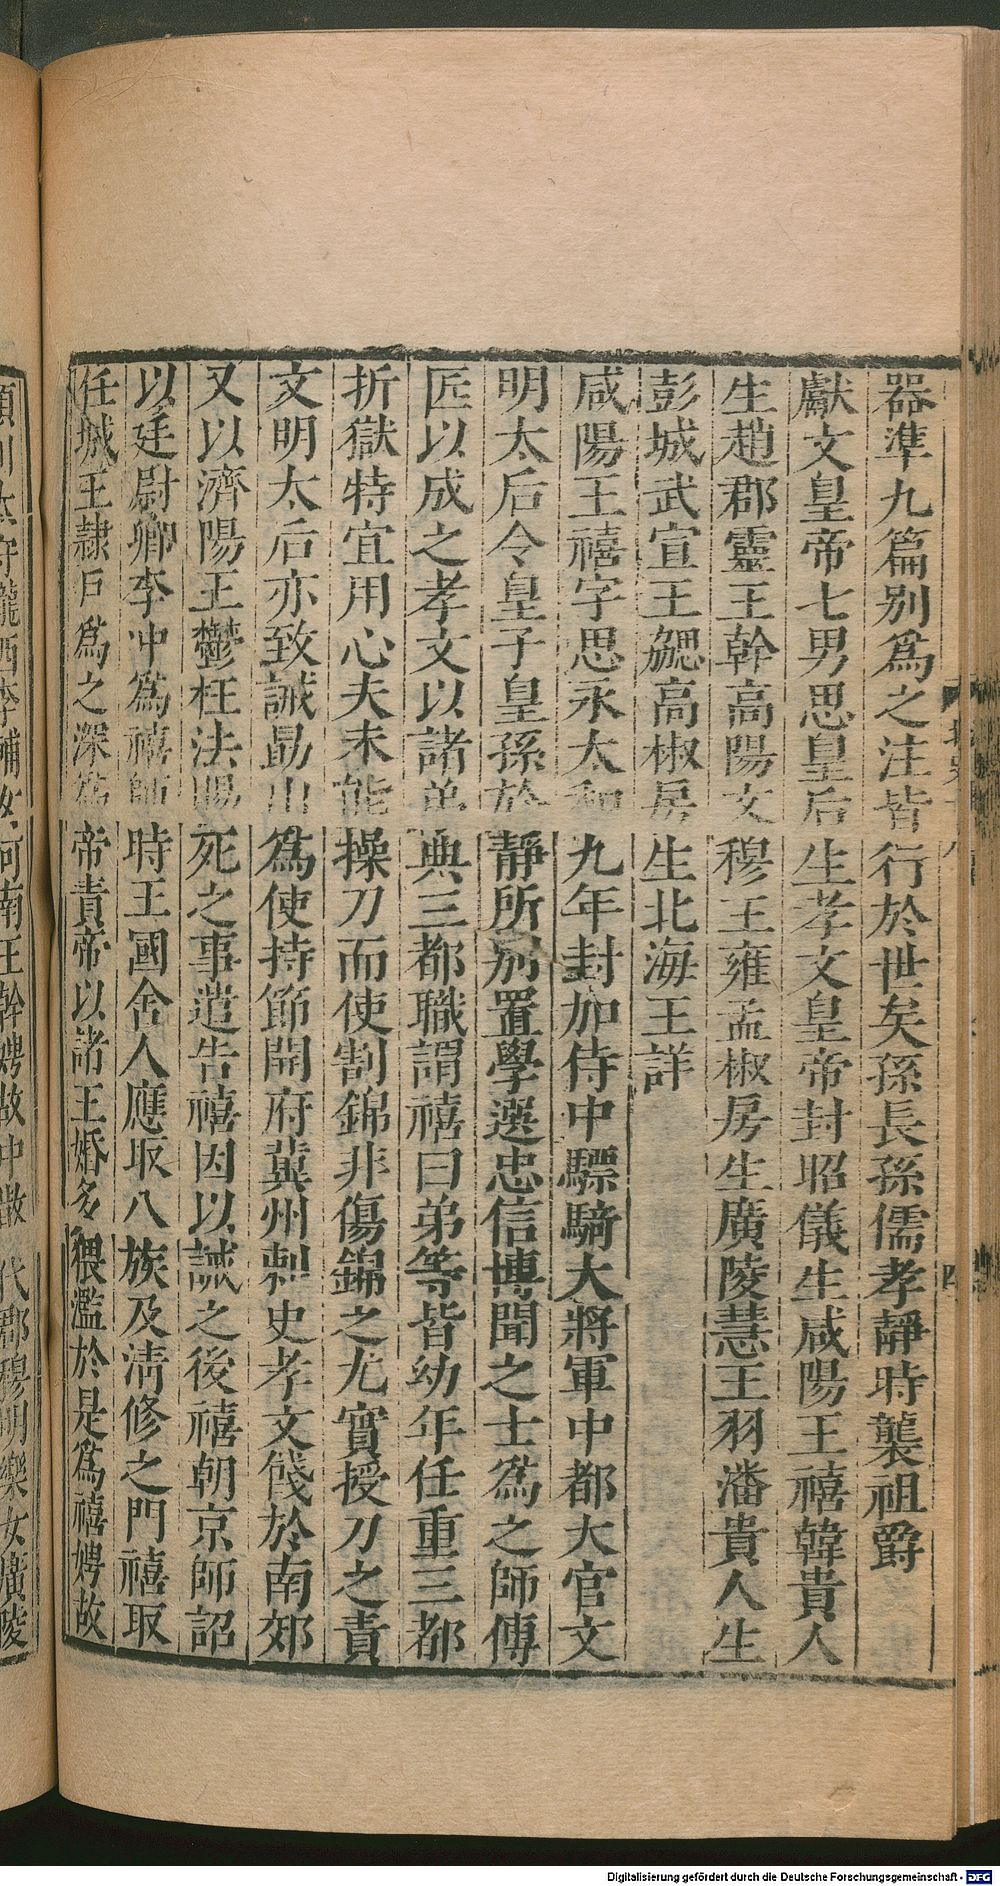 器準九篇别爲之注皆行於世矣孫長孫儒孝靜時襲祖爵
獻文皇帝七男思皇后生孝文皇帝封昭儀生咸陽王禧韓貴人
生趙郡靈王幹高陽文穆王雍孟椒房生廣陵慧王羽潘貴人生
彭城武宣王勰高椒房生北海王詳
咸陽王禧字思永太和九年封加侍中驃騎大將軍中都大官文
明太后令皇子皇孫於靜所别置學選忠信博聞之士爲之師傅
匠以成之孝文以諸弟典三都職謂禧曰弟等皆幼年任重三都
折獄特宜用心夫未能操刀而使割錦非傷錦之尤實授刀之責
文明太后亦致誡勗出爲使持節開府冀州刺史孝文餞於南郊
又以濟陽王鬱枉法賜死之事遣告禧因以誡之後禧朝京師詔
以廷尉卿李冲爲禧師時王國舍人應取八族及淸修之門禧取
任城王隷戸爲之深爲帝責帝以諸王婚多猥濫於是爲禧娉故
女河南王幹娉故中散代郡穆明樂女廣陵
Digitalisierung gefördert durch die Deutsche Forschungsgemeinschaft - DFG